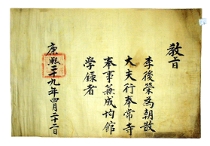 敎旨
李後榮爲朝散
大夫行奉常寺
奉事兼成均館
學錄者
康熙二十九年四月二十二日